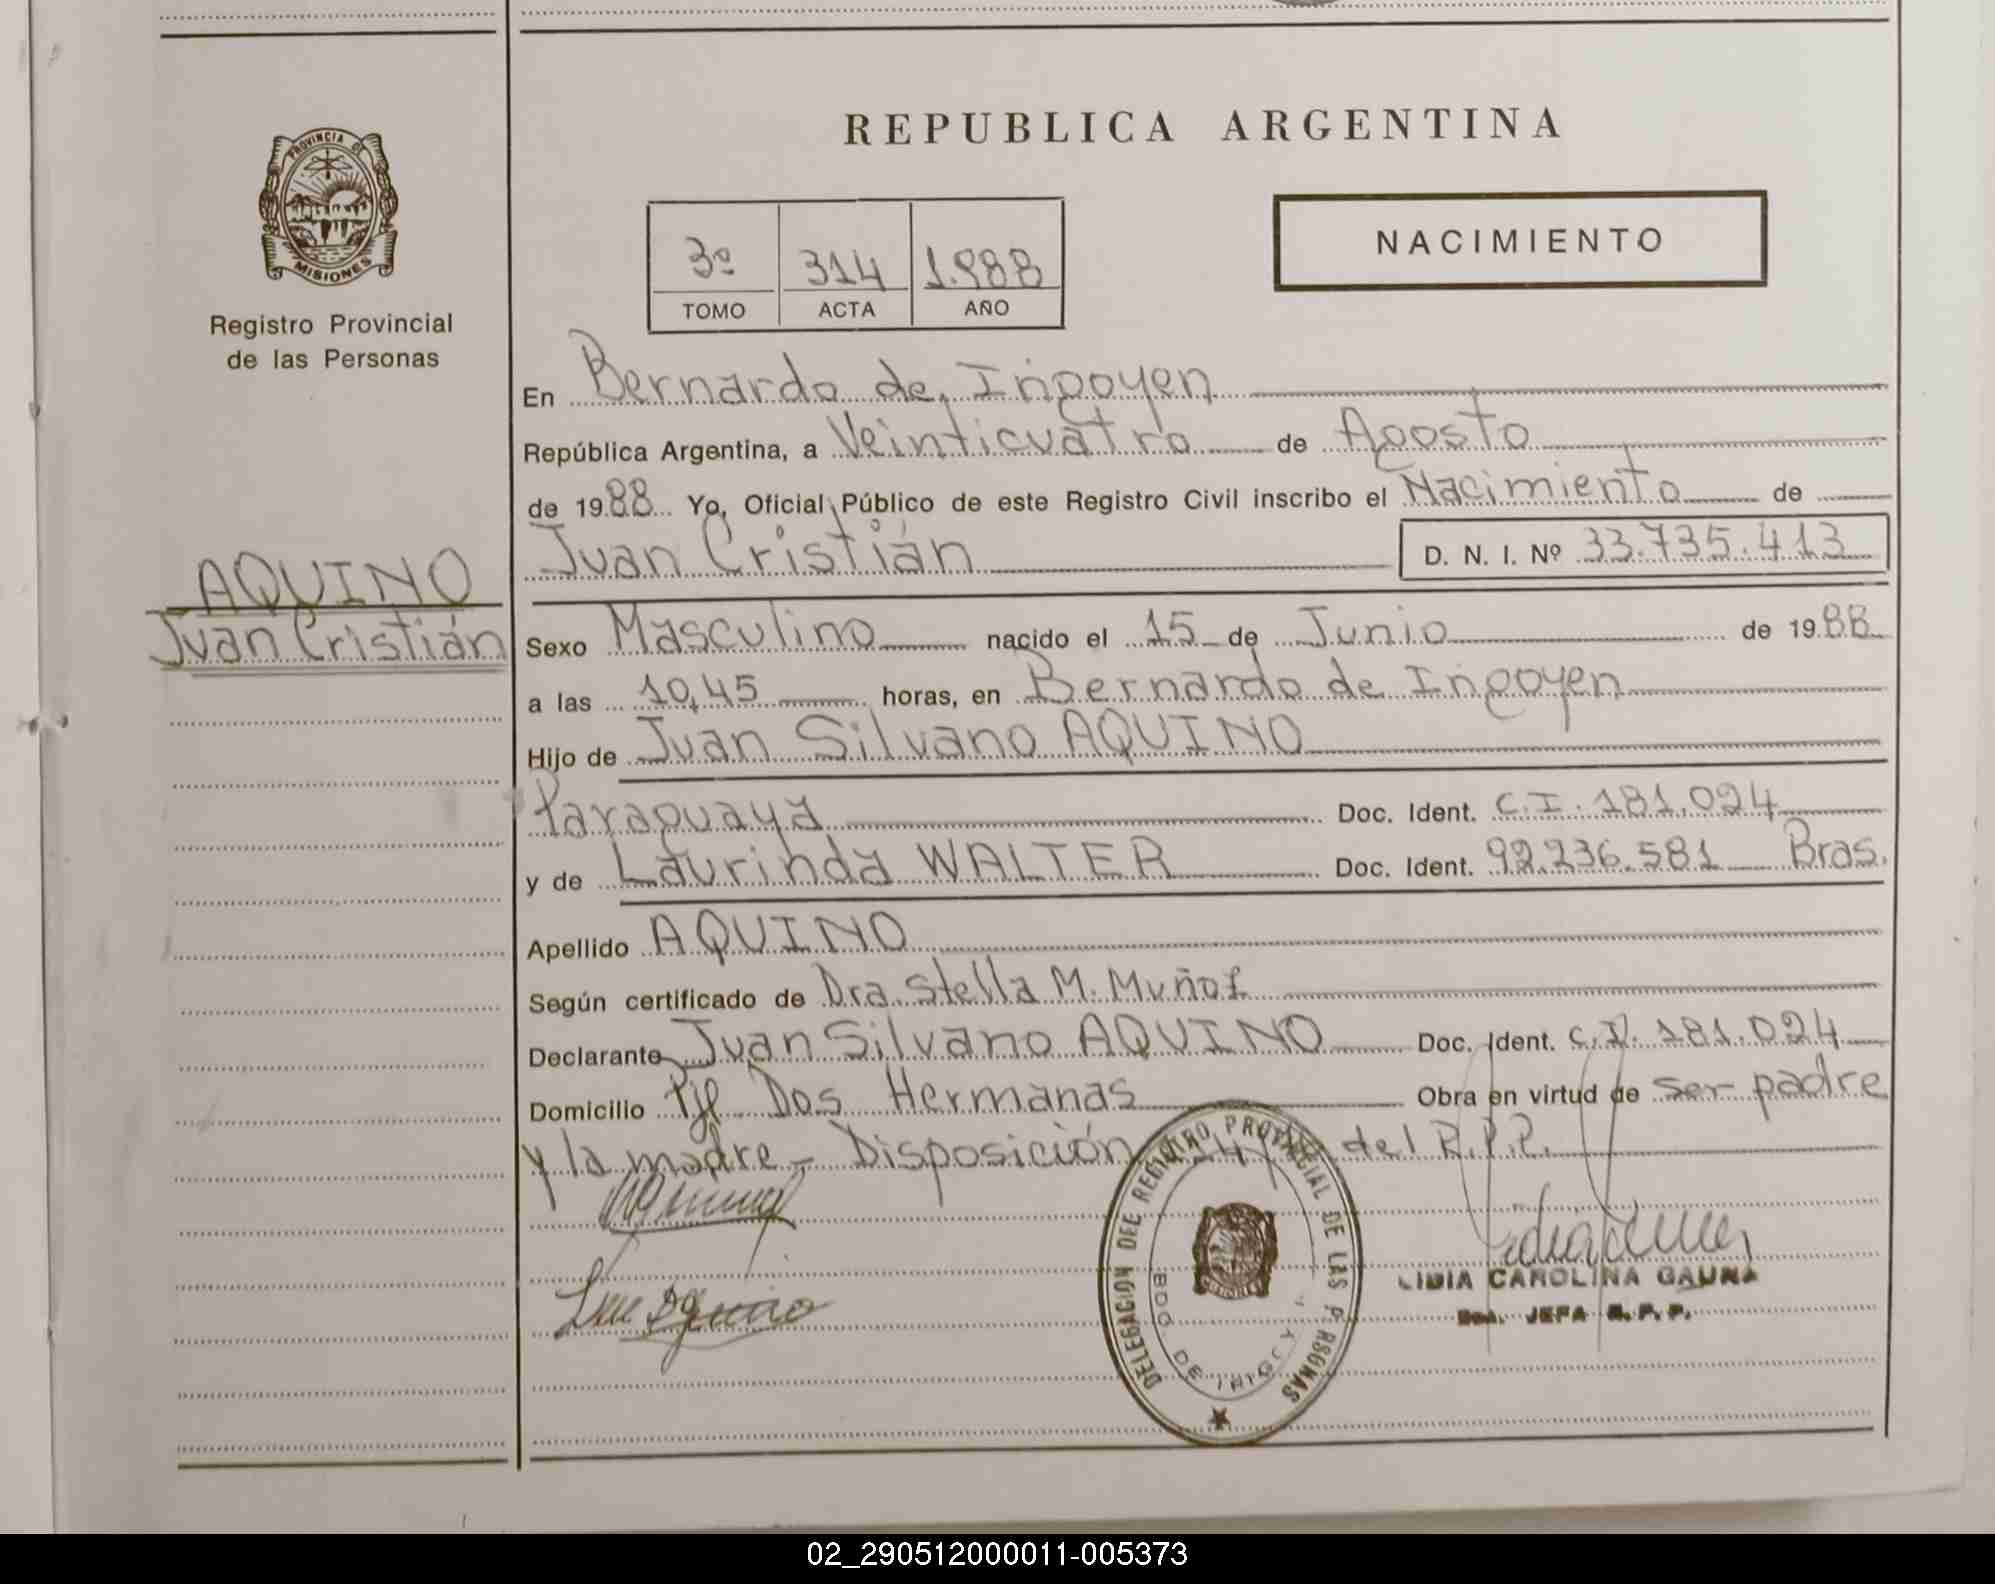 PROVINCIA DE
MISIONES
Registro Provincial
de las Personas
AQUINO
Juan Cristián
REPUBLICA ARGENTINA
3º 314 1.988
TOMO ACTA AÑO
NACIMIENTO
En Bernardo de Irigoyen
República Argentina, a Veinticuatro de Agosto
de 1988 Yo, Oficial Público de este Registro Civil inscribo el Nacimiento de
Juan Cristián D. N. I. Nº 33.735.413
Sexo Masculino nacido el 15 de Junio de 1988
a las 10,45 horas, en Bernardo de Irigoyen
Hijo de Juan Silvano AQUINO
Paraguaya Doc. Ident. C.I. 181.024
y de Laurinda WALTER Doc. Ident. 92.236.581 Bras.
Apellido AQUINO
Según certificado de Dra Stella M. Muñoz
Declarante Juan Silvano AQUINO Doc. Ident. C.I. 181.024
Domicilio Pje Dos Hermanas Obra en virtud de ser padre
y la madre - Disposición del R.P.P.
DELEGACION DEL REGISTRO PROVINCIAL DE LAS PERSONAS
BDO. DE IRIGOYEN
LIDIA CAROLINA GAUNA
JEFA R.P.P.
02_290512000011-005373